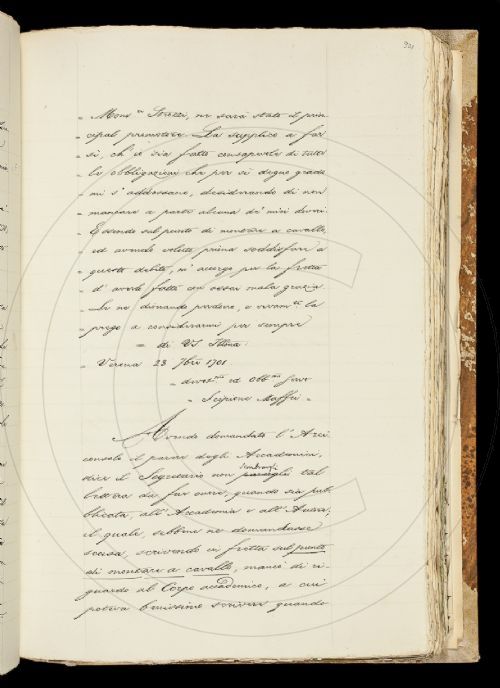 301
„ Mons.r Strozzi, ne sarà stato il prin
„ cipal promotore. La supplico a far
„ sì, ch'io sia fatto consapevole di tutte
„ le obbligazioni che per sì degno grado
„ mi s'addossano, desiderando di non
„ mancare a parte alcuna de' miei doveri.
„ Essendo sul punto di montare a cavallo,
„ ed avendo voluto prima soddisfare a
„ questo debito, m'accorgo per la fretta
„ d'averlo fatto con assai mala grazia.
„ Le ne dimando perdono, e vivam.te la
„ prego a considerarmi per sempre
„ di VS Illma.
„ Verona 23 7bre 1701
„ devot.mo ed obb.mo serv.
„ Scipione Maffei „
Avendo domandato l'Arci
consolo il parere degli Accademici,
disse il Segretario non sembrargli tal
lettera da far onore, quando sia pub
blicata, all'Accademia e all'Autore,
il quale, sebbene ne domandasse
scusa, scrivendo in fretta sul punto
di montare a cavallo, mancò di ri
guardo al Corpo accademico, a cui
poteva benissimo scrivere quando